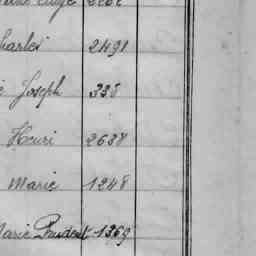 Charles 2491
Joseph 338
Henri 2638
Marie 1248
Marie Prudent 1369